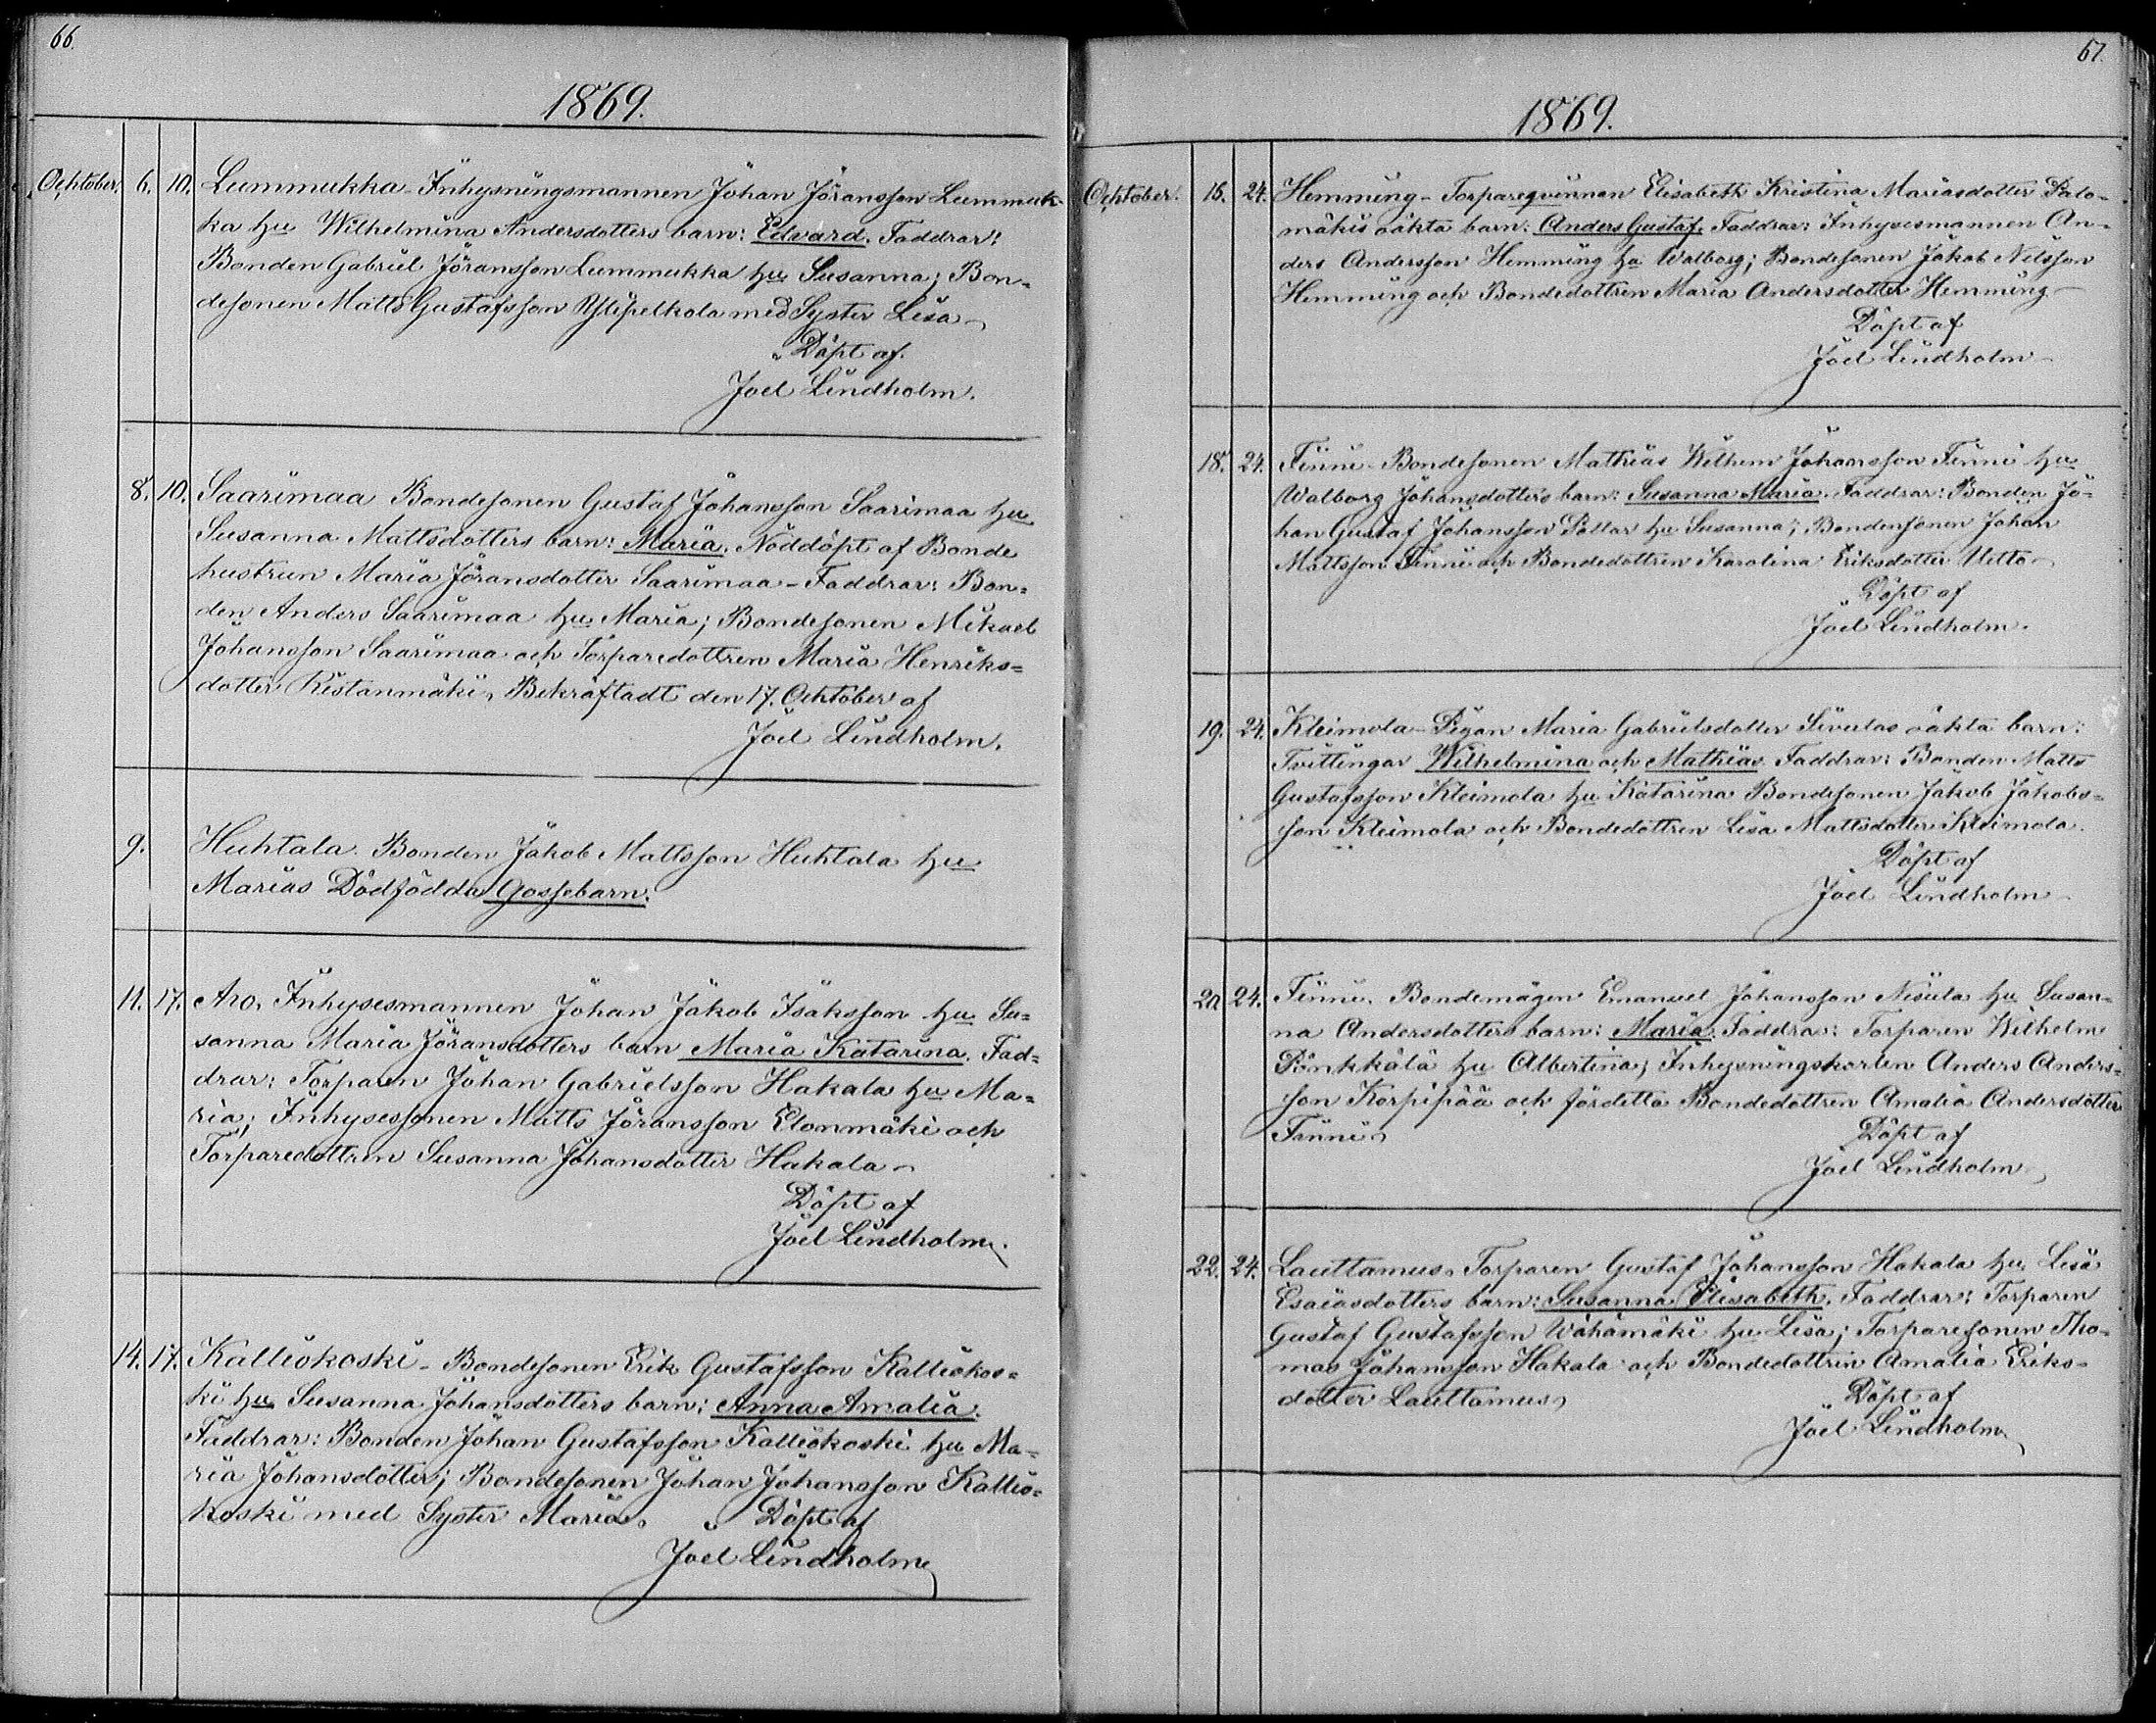 66.
1869.
Ocktober. 6. 10. Lummukka - Inhysningsmannen Johan Jöransson Lummuk-
ka hu Wilhelmina Andersdotters barn: Edvard. Faddrar:
Bonden Gabriel Jöransson Lummukka hu Susanna; Bon-
desonen Matts Gustafsson med Syster Lisa
Döpt af.
Joel Lindholm.
8. 10. Saarimaa Bondesonen Gustaf Johansson Saarimaa hu
Susanna Mattsdotters barn: Maria. Nöddöpt af Bonde
hustrun Maria Jöransdotter Saarimaa - Faddrar: Bon-
den Anders Saarimaa hu Maria; Bondesonen Mikael
Johansson Saarimaa och Torparedottren Maria Henriks-
dotter Ristanmäki, Bekräftadt den 17. Ocktober af
Joel Lindholm.
9. Huhtala. Bonden Jakob Mattsson Huhtala hu
Marias Dödfödda Gossebarn.
11. 17. Aro, Inhysesmannen Johan Jakob Isaksson hu Su-
sanna Maria Jöransdotters barn Maria Katarina. Fad-
drar: Torparen Johan Gabrielsson Hakala hu Ma-
ria; Inhysessonen Matts Jöransson Elonmäki och
Torparedottren Susanna Johansdotter Hakala
Döpt af
Joel Lindholm.
14. 17. Kalliokoski - Bondesonen Erik Gustafsson Kalliokos-
ki hu Susanna Johansdotters barn: Anna Amalia.
Faddrar: Bonden Johan Gustafsson Kalliokoski hu Ma-
ria Johansdotter; Bondesonen Johan Johansson Kallio-
koski med Syster Maria. Döpt af
Joel Lindholm
67.
1869.
Ocktober. 16. 24. Hemming - Torpareqvinnan Elisabeth Kristina Mariasdotter Palo-
mäkis oäkta barn: Anders Gustaf. Faddrar: Inhysesmannen An-
ders Andersson Hemming hu Walborg; Bondesonen Jakob Nilsson
Hemming och Bondedottren Maria Andersdotter Hemming
Döpt af
Joel Lindholm
18. 24. Finni - Bondesonen Mathias Wilhem Johansson Finni hu
Walborg Johansdotters barn: Susanna Maria. Faddrar: Bonden Jo-
han Gustaf Johansson Pollar hu Susanna; Bondensonen Johan
Mattsson Finni och Bondedottren Karolina Eriksdotter Uitto
Döpt af
Joel Lindholm.
19. 24. Kleimola - Pigan Maria Gabrielsdotter Sivulas oäkta barn:
Tvillingar Wilhelmina och Mathias. Faddrar: Bonden Matts
Gustafsson Kleimola hu Katarina Bondesonen Jakob Jakobs-
son Kleimola och Bondedottren Lisa Mattsdotter Kleimola.
Döpt af
Joel Lindholm
20. 24. Finni. Bondemågen Emanuel Johansson Nisula hu Susan-
na Andersdotters barn: Maria. Faddrar: Torparen Wilhelm
Pönkkälä hu Albertina; Inhysningskarlen Anders Anders-
son Korpipää och fördetta Bondedottren Amalia Andersdotter
Finni Döpt af
Joel Lindholm
22. 24. Lauttamus. Torparen Gustaf Johansson Hakala hu Lisa
Esaiasdotters barn: Susanna Elisabeth. Faddrar: Torparen
Gustaf Gustafsson Wähämäki hu Lisa; Torparesonen Tho-
mas Johansson Hakala och Bondedottren Amalia Eriks-
dotter Lauttamus Döpt af
Joel Lindholm